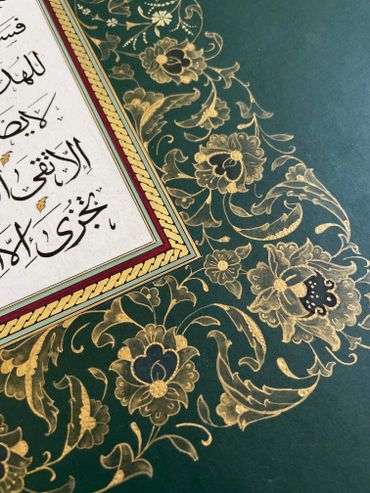 فسـ
للهد
لا يصـ
الاتقى ا
تجزى الا